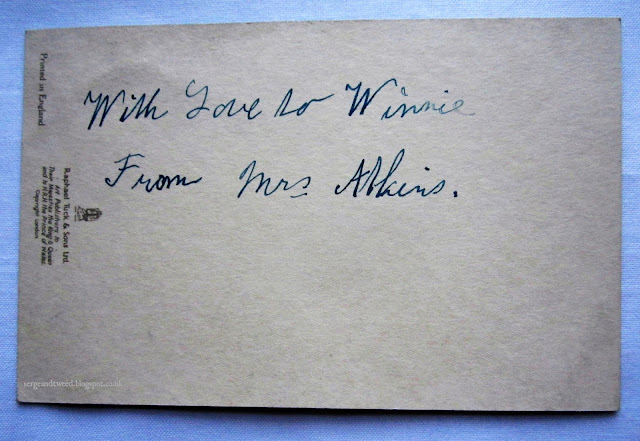 With Love to Winnie
From Mrs Atkins.
Printed in England
Raphael Tuck & Sons Ltd.
Art Publishers to
Their Majesties the King & Queen
and to H.R.H. the Prince of Wales.
Copyright London
sergeandtweed.blogspot.co.uk